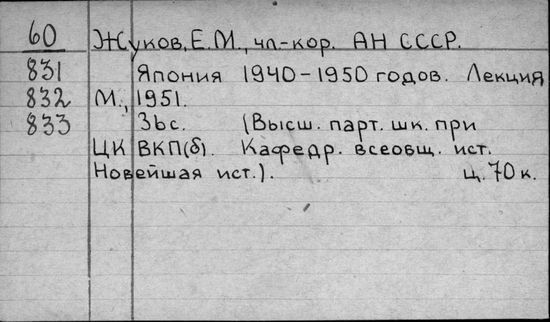 60 Жуков, Е.М., чл-кор. АН СССР.
831 Япония 1940-1950 годов. Лекция
832 М., 1951.
833 36с. (Высш. парт. шк. при
ЦК ВКП(б). Кафедр. всеовщ. ист.
Новейшая ист.). ц. 70 к.